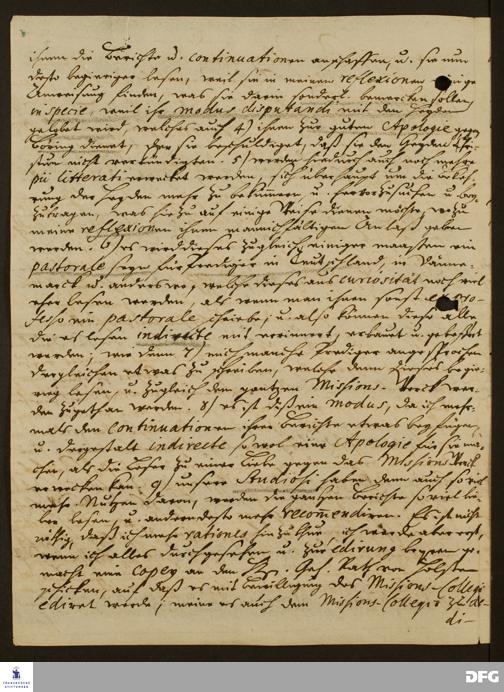 ihnen die Berichte u. continuationen anschaffen, u. sie nun
desto begieriger lesen, weil sie in meinen reflexionen einige
Anweisung finden, was sie darin sonderl. bemercken sollen
in specie, weil ihr modus disputandi mit den Heyden
gelobet wird, welches auch 4) ihnen zur guten Apologie gegen
dienet, der sie beschuldiget, daß sie den Heyden
nicht verkündigten. 5) werden hiedurch auch noch mehre
pii litterati erwecket werden, sich überhaupt um die
der Heyden mehr zu bekümmern u. hervorzusuchen u. bey
zutragen, was hiezu auf einige Weise dienen möchte, wozu
meine reflexionen ihnen mannichfältigen Anlaß geben
werden. 6) es wird dieses zugleich einiger maassen ein
pastorale seyn für Prediger in Teutschland, in Dänne-
marck u. anderswo, welche dieses aus curiosität noch viel
eher lesen werden, als wenn man ihnen sonst ex pro-
fesso ein pastorale schriebe; u. also können diese alle
die es lesen indirecte mit erinnert, erbauet u. gebessert
werden; wie denn 7) mich manche Prediger angesprochen
dergleichen etwas zu schreiben, welche denn dieses begie-
rig lesen, u. zugleich dem gantzen Missions-Werck wer-
den zugethan werden. 8) es ist dieß ein modus, da ich mehr-
mals den continuationen ihrer Berichte etwas beyfügen,
u. dergestalt indirecte sowol eine Apologie für sie ma-
chen, als die Leser zu einer Liebe gegen das Missions Werck
erwecken kan. 9) unsere Studiosi haben denn auch so viel
mehr Nutzen davon, werden die gantzen Berichte so viel lie-
ber lesen u. andern desto mehr recommendiren. Es ist nicht
nöthig, daß ich mehr rationes hinzu thue; ich werde aber erst,
wenn ich alles durchgesehen u. zur edirung bequem ge-
macht eine copey an den Hn. Geh. Rath von Holsten
schicken, auf daß es mit Bewilligung des Missions-Collegii
ediret werde; meine es auch dem Missions-Collegio zu de-
di-
FRANCKESCHE
STIFTUNGEN
DFG